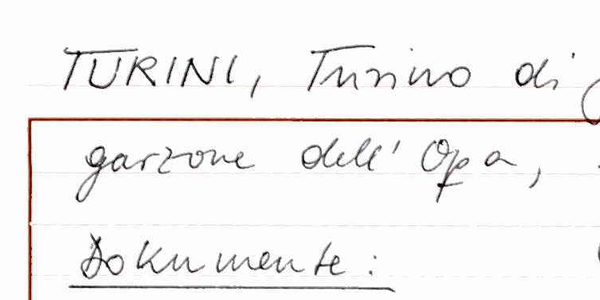 TURINI, Turino di
garzone dell' Opa,
Dokumente: